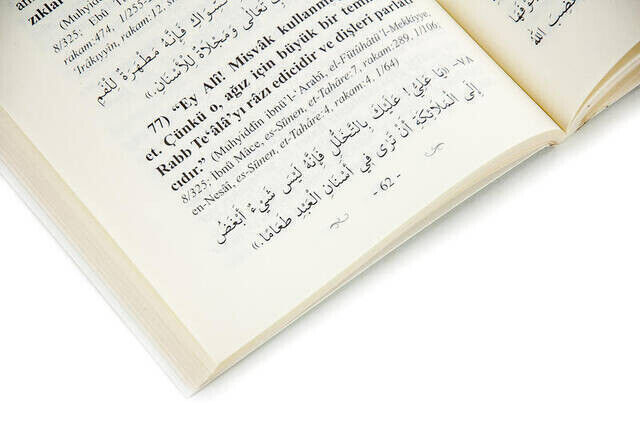 zıklar
rakam:474, 1/255-
8/325; Ebû
'Irâkıyyîn, rakam:12,
فَإِنَّهُ مَطْهَرَةٌ لِلْفَمِ
تَعَالَى وَمَجْلَاةٌ لِلْأَسْنَانِ.»
77) “Ey Alî! Misvâk kullanmed
et. Çünkü o, ağız için büyük bir temi
Rabb Te‘âlâ’yı râzı edicidir ve dişleri parlat
cıdır.” (Muhyiddîn ibnü'l-‘Arabî, el-Fütûhâtü'l-Mekkiyye,
8/325; İbnü Mâce, es-Sünen, et-Tahâre:7, rakam:289, 1/106;
en-Nesâî, es-Sünen, et-Tahâre:4, rakam:4, 1/64)
٧٨– «يَا عَلِيُّ! عَلَيْكَ بِالتَّخَلُّلِ فَإِنَّهُ لَيْسَ شَيْءٌ أَبْغَضُ
إِلَى الْمَلَائِكَةِ أَنْ تَرَى فِي أَسْنَانِ الْعَبْدِ طَعَامًا.»
- 62 -
الله